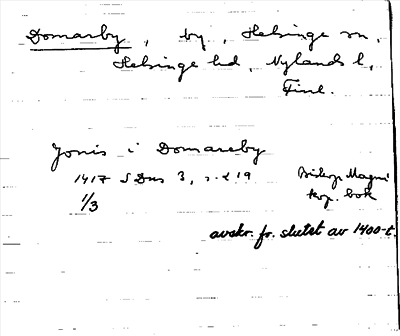 Domarby, by, Helsinge sn,
Helsinge hd, Nylands l,
Finl.
Jonis i Domareby
1417 SDns 3, s. 219 Biskop Magni
1/3 kop. bok
avskr. fr. slutet av 1400-t.